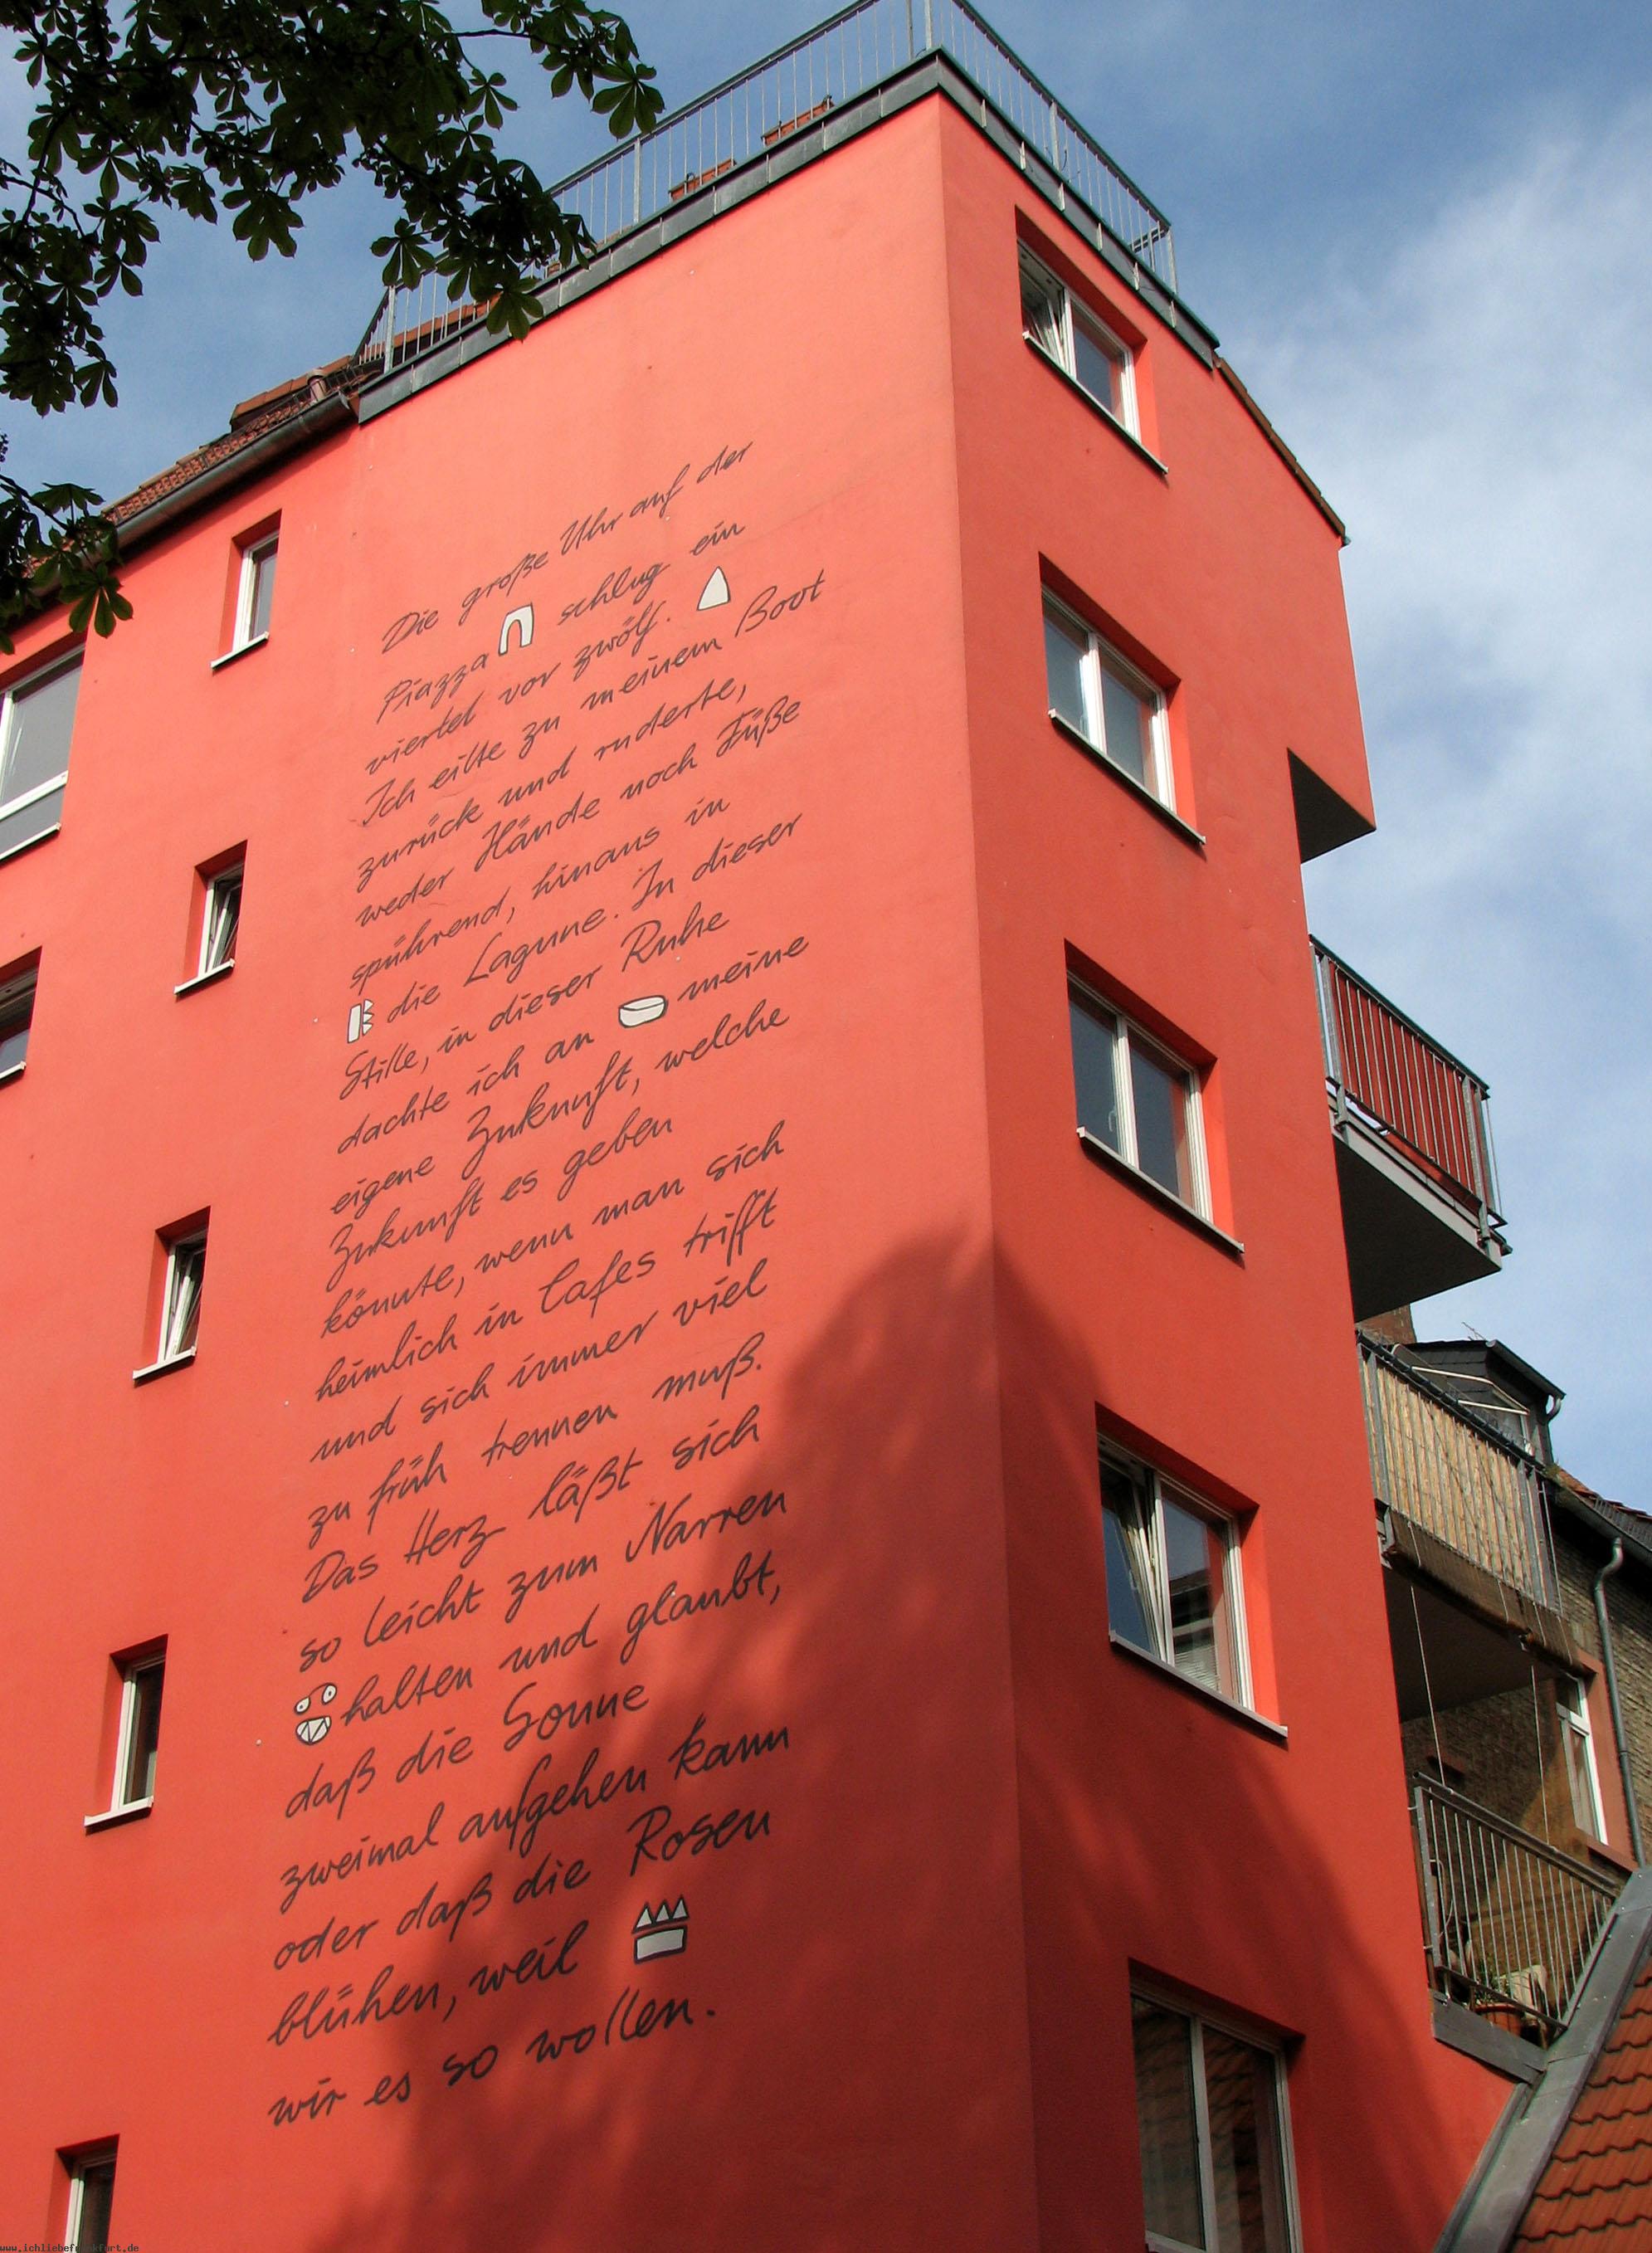 Die große Uhr auf der
Piazza schlug ein
viertel vor zwölf.
Ich eilte zu meinem Boot
zurück und ruderte,
weder Hände noch Füße
spührend, hinaus in
die Lagune. In dieser
Stille, in dieser Ruhe
dachte ich an meine
eigene Zukunft, welche
Zukunft es geben
könnte, wenn man sich
heimlich in Cafes trifft
und sich immer viel
zu früh trennen muß.
Das Herz läßt sich
so leicht zum Narren
halten und glaubt,
daß die Sonne
zweimal aufgehen kann
oder daß die Rosen
blühen, weil
wir es so wollen.
www.ichliebefrankfurt.de